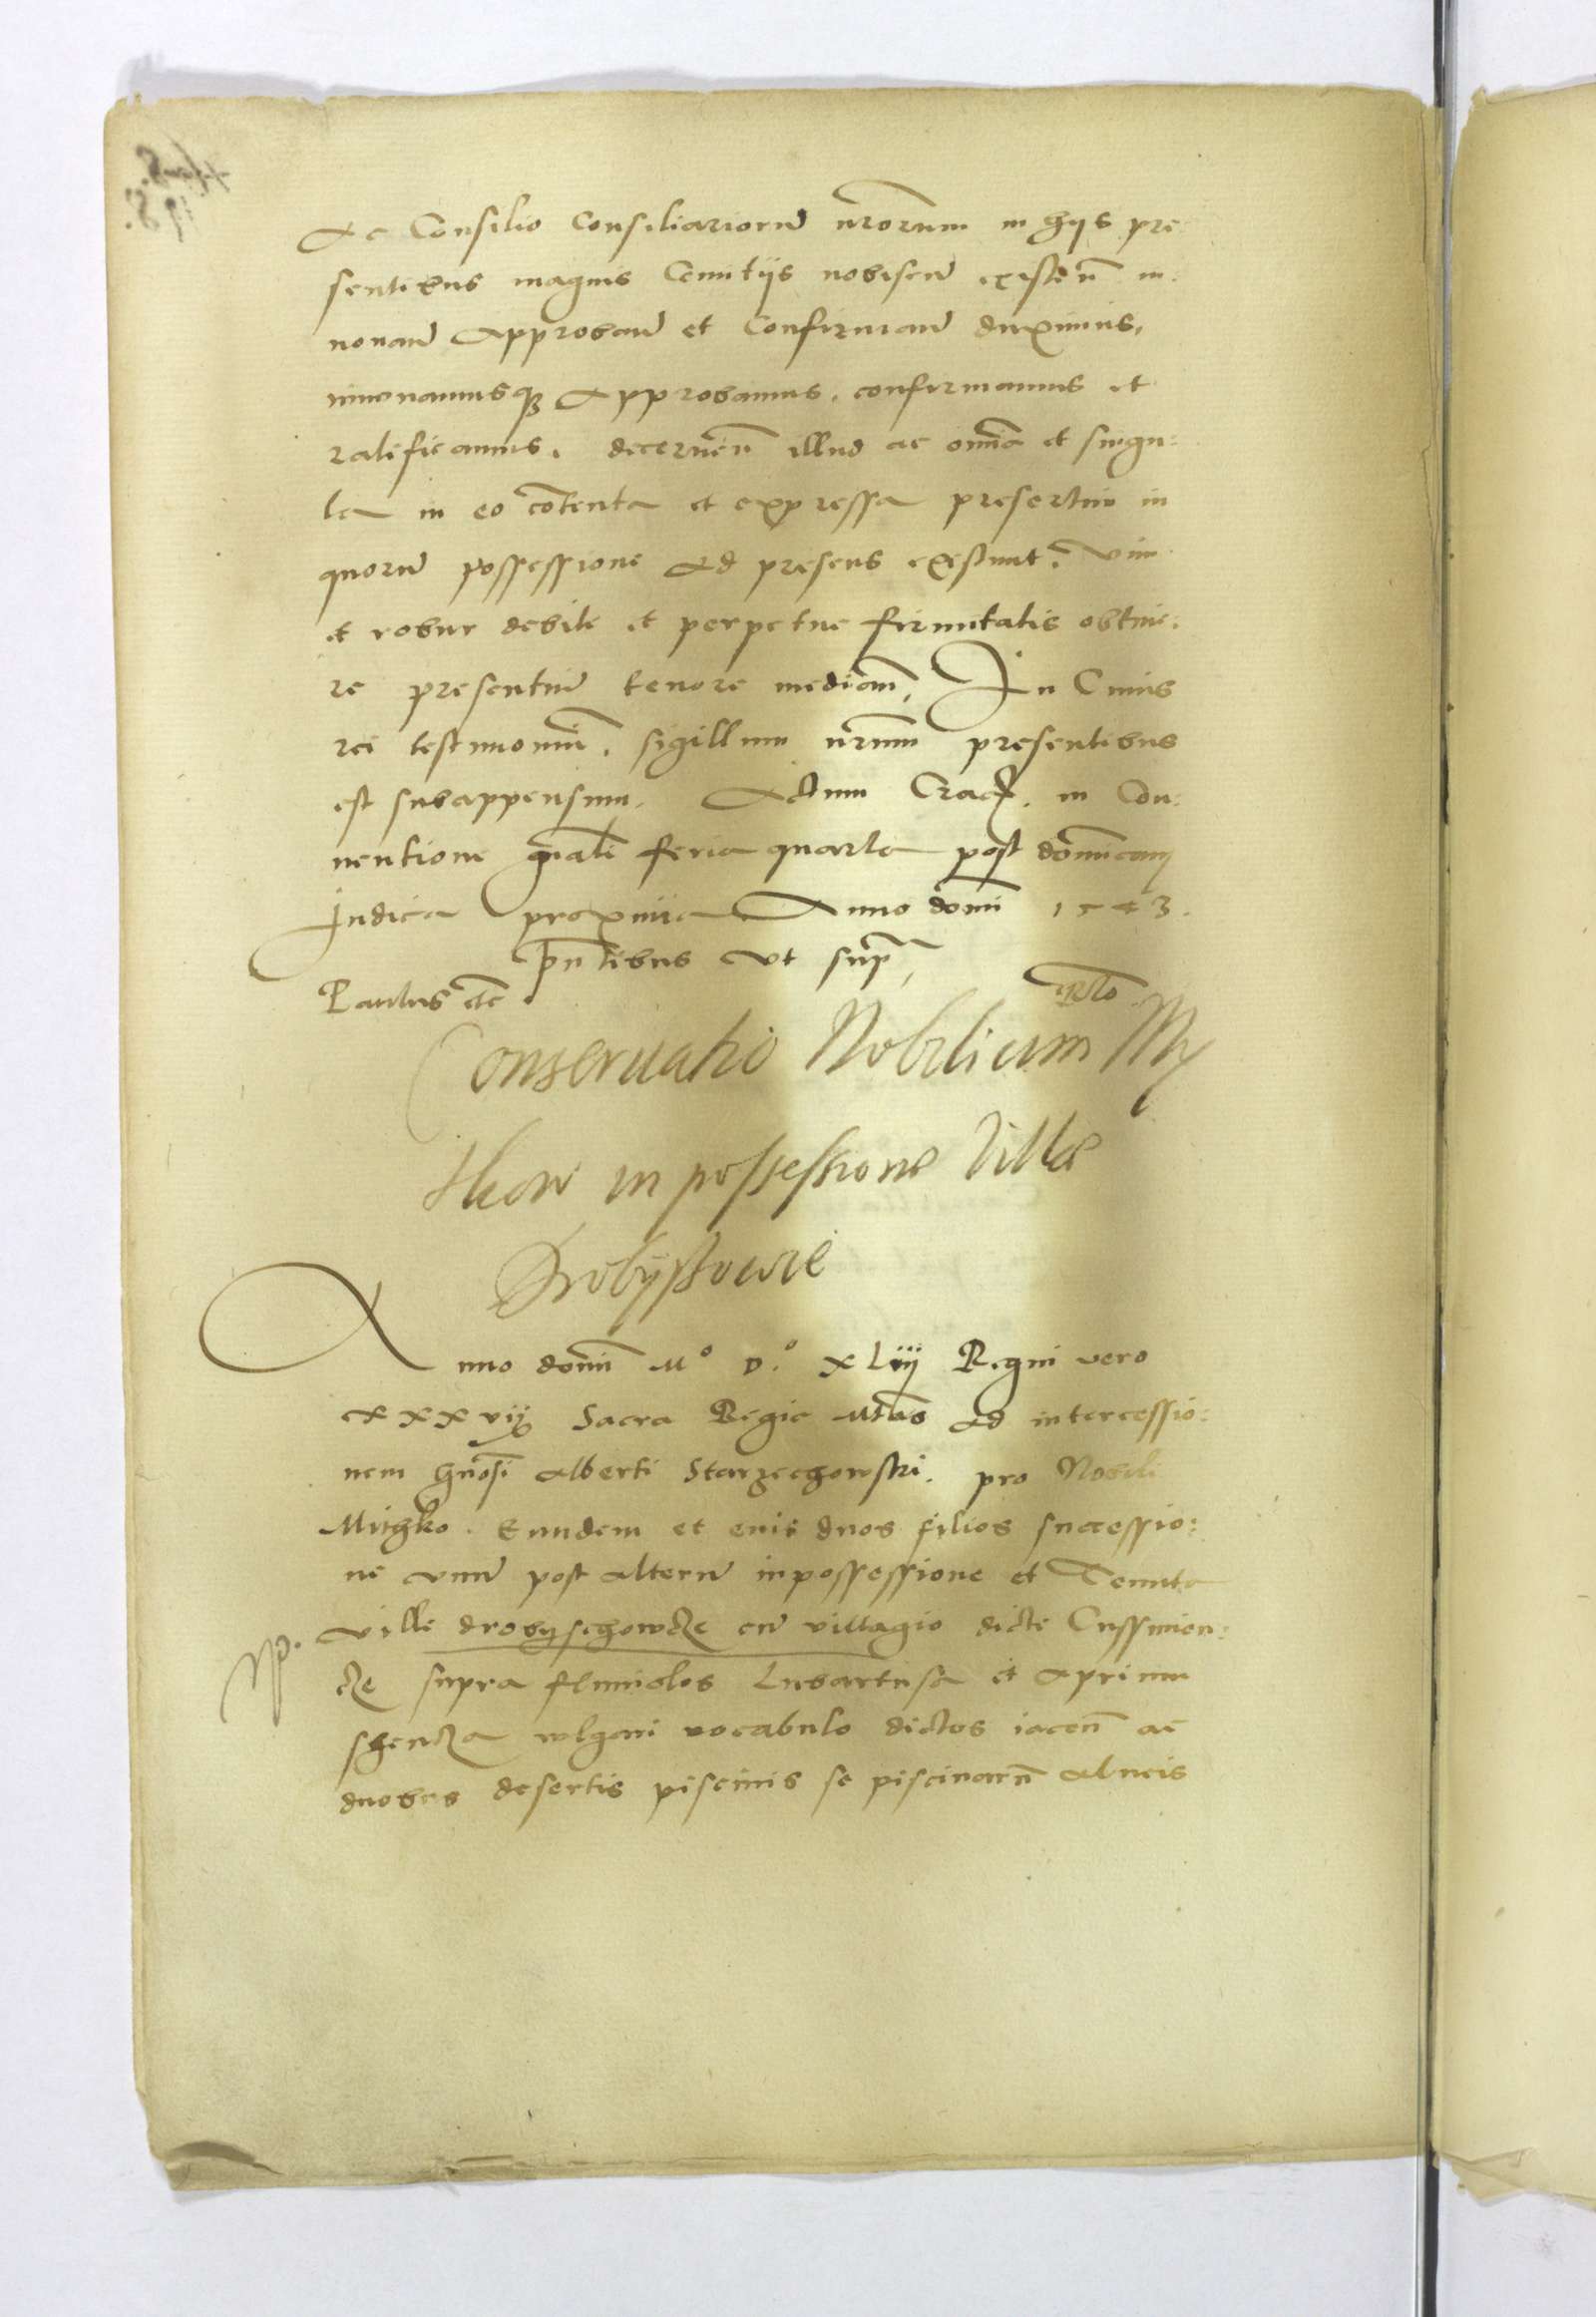 Ac Consilio Consiliarioru nrorum in hijs pre
sentibus magnis Comitijs nobiscu existen in
nouand approband et Confirmand duximus,
innouamusq approbamus, confirmamus et
ratificamus. decernen illud ac omia et singu:
la in eo cotenta et expressa presertim in
quoru possessione ad presens existunt, vim
et robur debite et perpetue firmitatis obtine:
re presentiu tenore median, In Cuius
rei testimoniu, sigillum nrum presentibus
est subappensum. Actum Crac. in Con:
uentione gnali feria quarta post dominicam
Iudica proxima Anno domi 1543.
pntibus vt sup
Paulus etc
Conseruatio Nobilium My
thkow in possessione Villae
Drobyssowcze
Anno domi Mo D.o xliij Regni vero
xxxvij Sacra Regie Mtas ad intercessio:
nem gnosi Alberti Starzechowski. pro Nobili
Mithko. Eundem et eius duos filios successio:
ne vnu post alteru in possessione et Tenuta
ville drobyschowcze cu villagio dicte Cussmien:
cze supra fluuiolos Lubartusa et Aprinin
shencza wlgari vocabulo dictos iacen ac
duobus desertis piscinis se piscinaru alueis